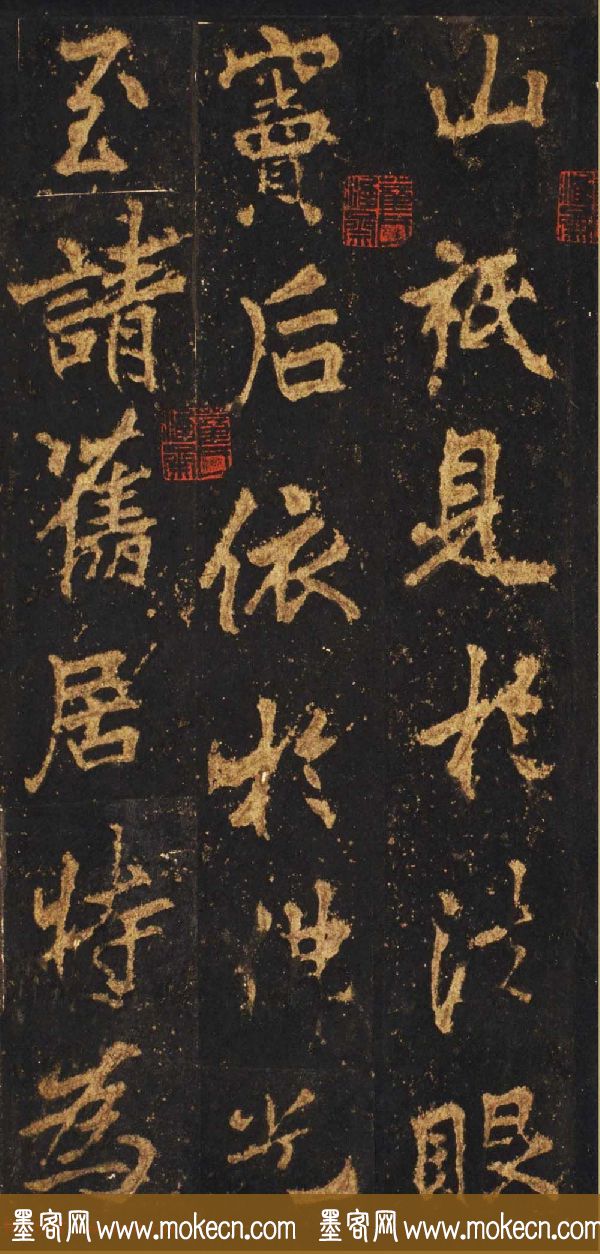 山祇見於法眼
竇后依於佛光
至請舊居特為
墨客网 www.mokecn.com 墨客网 www.mokecn.com